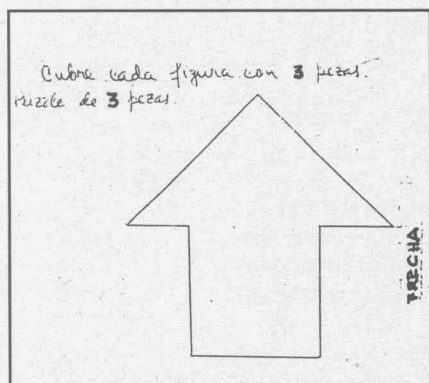 Cubre cada figura con 3 pezas.
Puzzle de 3 pezas.
FRECHA